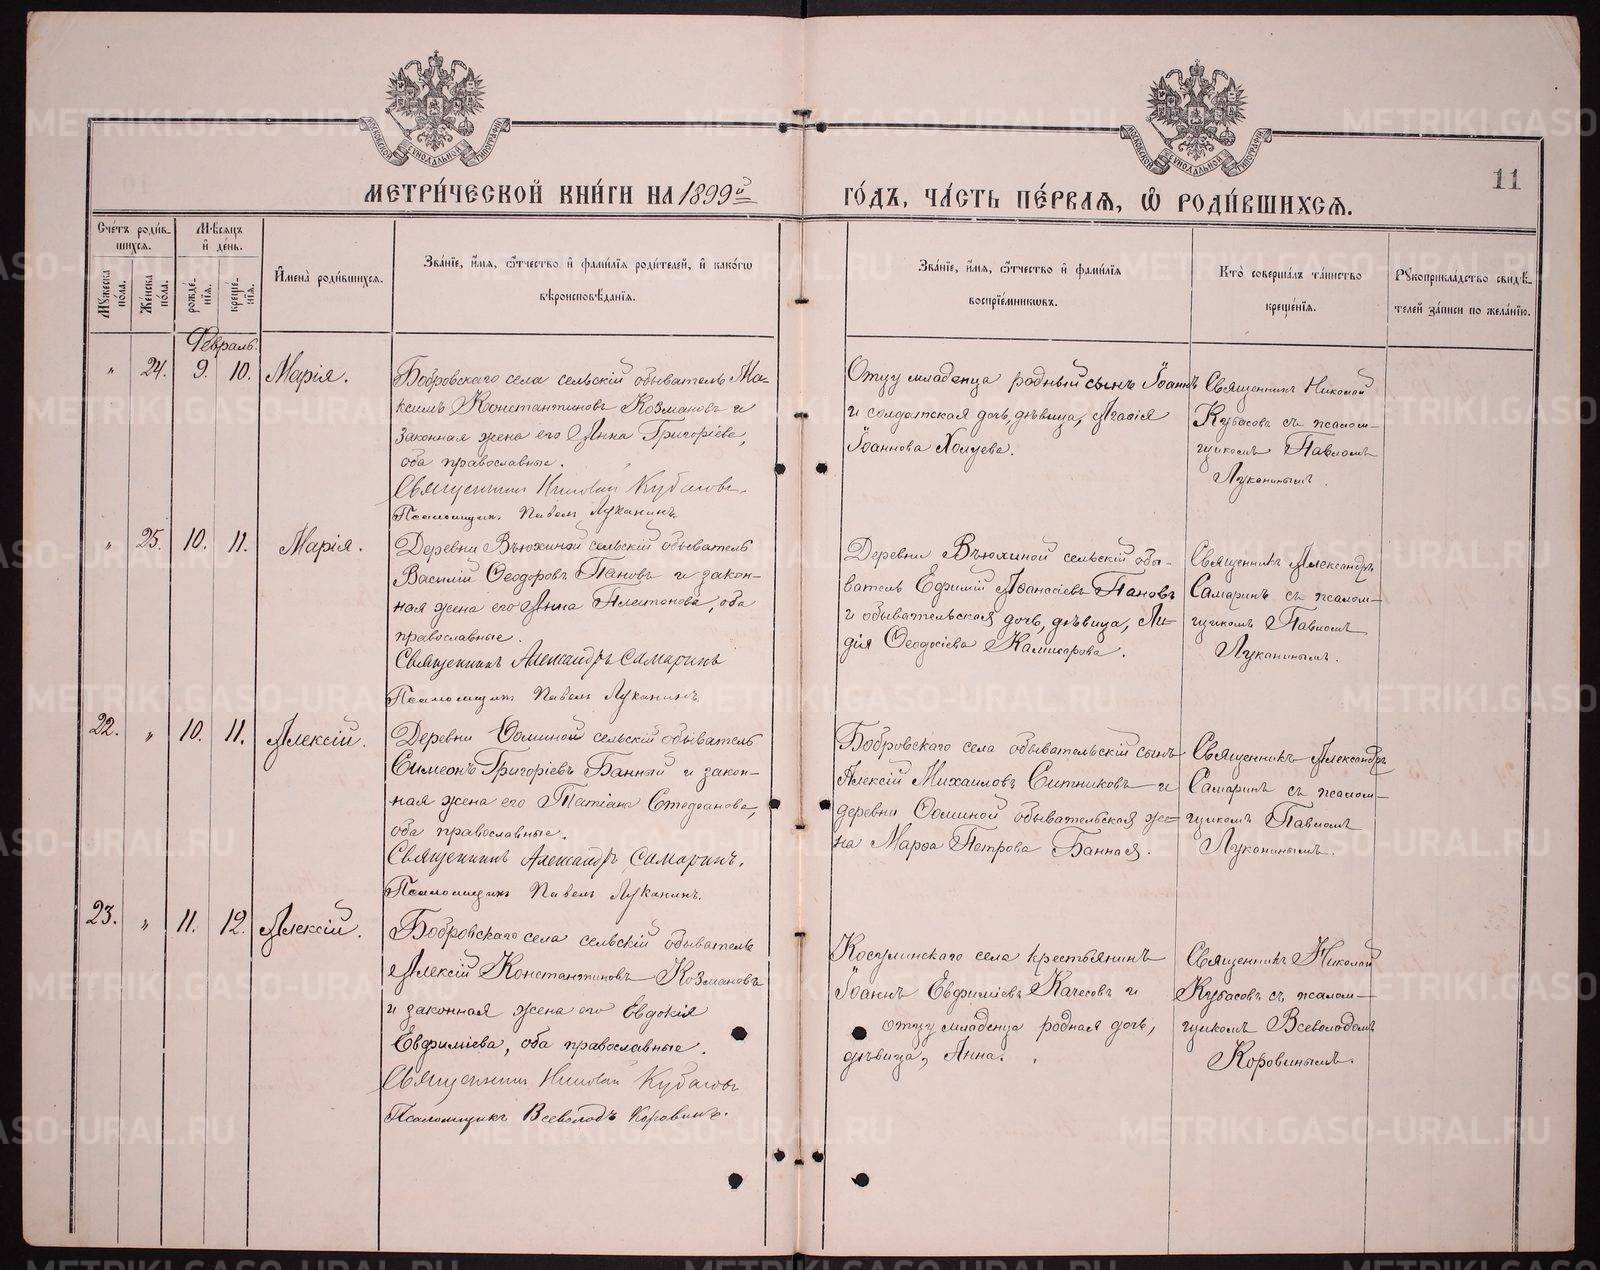 МОСКОВСКОЙ СУНОДАЛЬНОЙ ТИПОГРАФІИ
МОСКОВСКОЙ СУНОДАЛЬНОЙ ТИПОГРАФІИ
11
МЕТРИ́ЧЕСКОЙ КНИ́ГИ НА 1899й
ГО́ДЪ, ЧА́СТЬ ПЕ́РВАѦ, Ѿ РОДИ́ВШИХСѦ.
Сче́тъ роди́в-
шихсѧ.
Мꙋжеска по́ла.
Же́нска по́ла.
Мѣ́сѧцъ
и҆ де́нь.
рожде́-
нїѧ.
креще́-
нїѧ.
И҆мена̀ роди́вшихсѧ.
Зва́нїе, и҆́мѧ, ѻ҆́тчество и҆ фами́лїѧ роди́телей, и҆ како́гѡ
вѣроисповѣ́данїѧ.
Зва́нїе, и҆́мѧ, ѻ҆́тчество и҆ фами́лїѧ
воспрїе́мникѡвъ.
Кто̀ соверша́лъ та́инство
креще́нїѧ.
Рꙋкоприкла́дство свидѣ́-
телей за́писи по жела́нїю.
Февраль.
" 24. 9. 10. Марія.
Бобровскаго села сельскій обыватель Ма-
ксимъ Константиновъ Козмановъ и
законная жена его Анна Григоріева,
оба православные.
Священникъ Николай Кубасовъ.
Псаломщикъ Павелъ Луканинъ.
Отцу младенца родный сынъ Іоаннъ
и солдатская дочь, дѣвица, Агафія
Іоаннова Холуева.
Священникъ Николай
Кубасовъ съ псалом-
щикомъ Павломъ
Луканинымъ.
" 25. 10. 11. Марія.
Деревни Вьюхиной сельскій обыватель
Василій Ѳеодоровъ Пановъ и закон-
ная жена его Анна Платонова, оба
православные.
Священникъ Александръ Самаринъ
Псаломщикъ Павелъ Луканинъ.
Деревни Вьюхиной сельскій обы-
ватель Ефимій Аѳанасіевъ Пановъ
и обывательская дочь, дѣвица, Ли-
дія Ѳеодосіева Камисарова.
Священникъ Александръ
Самаринъ съ псалом-
щикомъ Павломъ
Луканинымъ.
22. " 10. 11. Алексій.
Деревни Ѳоминой сельскій обыватель
Симеонъ Григоріевъ Банный и закон-
ная жена его Татіана Стефанова,
оба православные.
Священникъ Александръ Самаринъ.
Псаломщикъ Павелъ Луканинъ.
Бобровскаго села обывательскій сынъ
Алексій Михаиловъ Ситниковъ и
деревни Ѳоминой обывательская же-
на Марѳа Петрова Банная.
Священникъ Александръ
Самаринъ съ псалом-
щикомъ Павломъ
Луканинымъ.
23. " 11. 12. Алексій.
Бобровскаго села сельскій обыватель
Алексій Константиновъ Козмановъ
и законная жена его Евдокія
Евфиміева, оба православные.
Священникъ Николай Кубасовъ
Псаломщикъ Всеволодъ Коровинъ.
Косулинскаго села крестьянинъ
Іоаннъ Евфиміевъ Качесовъ и
отцу младенца родная дочь,
дѣвица, Анна.
Священникъ Николай
Кубасовъ съ псалом-
щикомъ Всеволодомъ
Коровинымъ.
METRIKI.GASO-URAL.RU